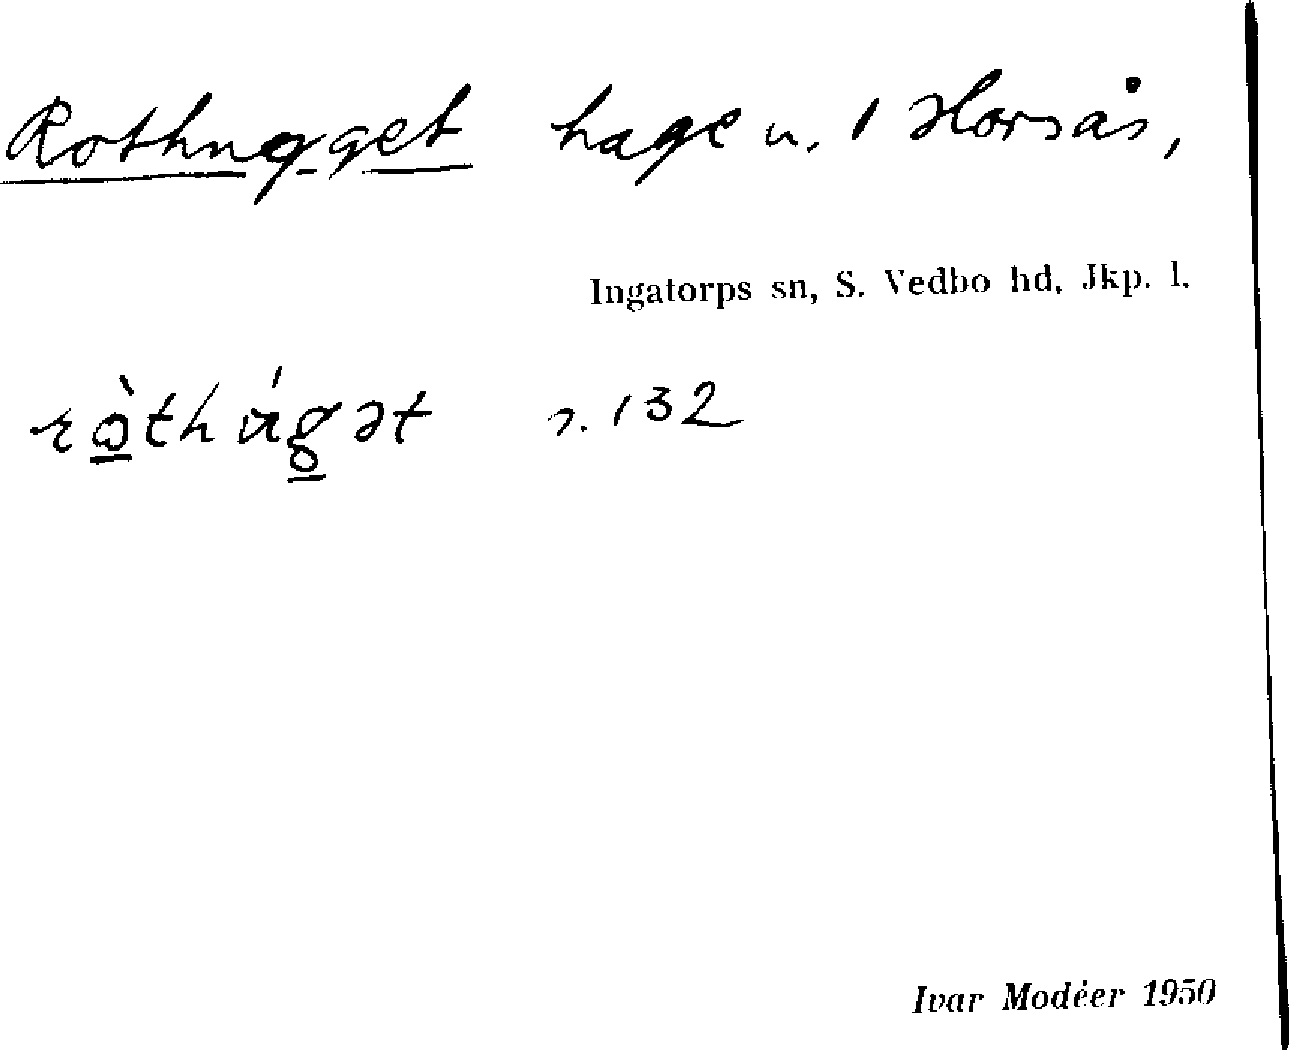 Rothugget hage u. 1 Horsås,
Ingatorps sn, S. Vedbo hd, Jkp. l.
s. 132
Ivar Modéer 1950